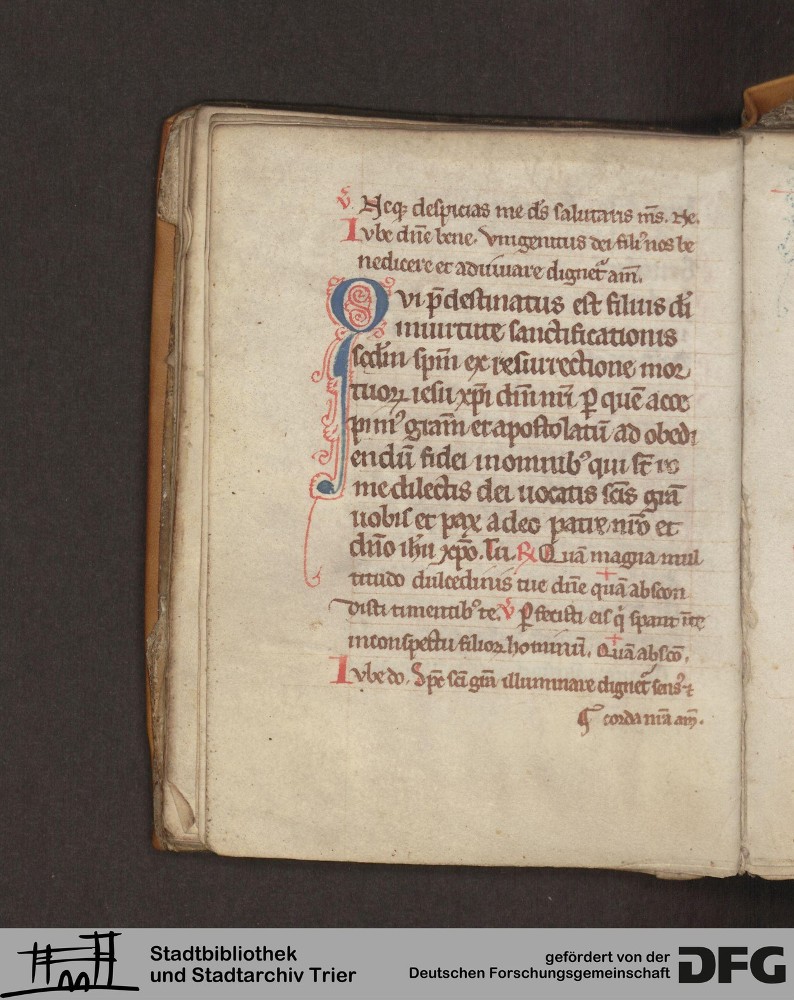 v̓. Neq; despicias me d̄s salutaris m̄s. Ne.
Iube dn̄e bene. Vnigenitus dei fili᾽ nos be
nedicere et adiuuare dignet᷑ am̄.
Qui p̄destinatus est filius dī
in uirtute sanctificationis
scd̄m sp̄m ex resurrectione mor
tuoꝝ iesu xp̄i dn̄i nr̄i ꝑ quē acce
pim᾽ grām et apostolatū ad obedi
endū fidei in omnib᾽ qui st̄ ro
me dilectis dei uocatis scīs grā
uobis et pax a deo patre nr̄o et
dn̄o ih̄u xp̄o. Tu. R̷ Quā magna mul
titudo dulcedinis tue dn̄e quā abscon
disti timentib᾽ te. v̓ ꝑfecisti eis q̇ spant ī te
in conspectu filioꝝ hominū. Quā abscō.
Iube do. Sp̄c scī grā illuminare dignet᷑ sens᾽ ⁊
corda nrā am̄.
Stadtbibliothek
und Stadtarchiv Trier
gefördert von der
Deutschen Forschungsgemeinschaft
DFG